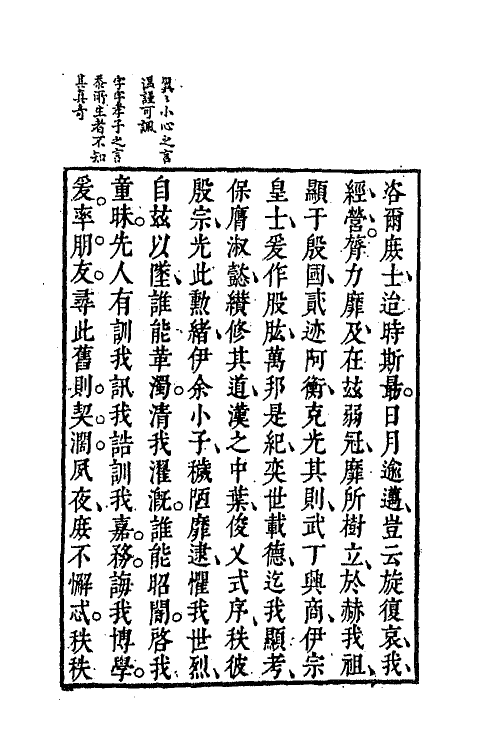 翼〻小心之言
溫謹可諷
字字孝子之言
忝所生者不知
其真奇
咨爾庶士迨時斯勗日月逾邁豈云旋復哀我
經營膂力靡及在玆弱冠靡所樹立於赫我祖
顯于殷國貳迹阿衡克光其則武丁興商伊宗
皇士爰作股肱萬邦是紀奕世載德迄我顯考
保膺淑懿纘修其道漢之中葉俊乂式序秩彼
殷宗光此勲緒伊余小子穢陋靡逮懼我世烈
自玆以墜誰能革濁清我濯溉誰能昭闇啓我
童昧先人有訓我訊我誥訓我嘉務誨我博學
爰率朋友尋此舊則契濶夙夜庶不懈忒秩秩